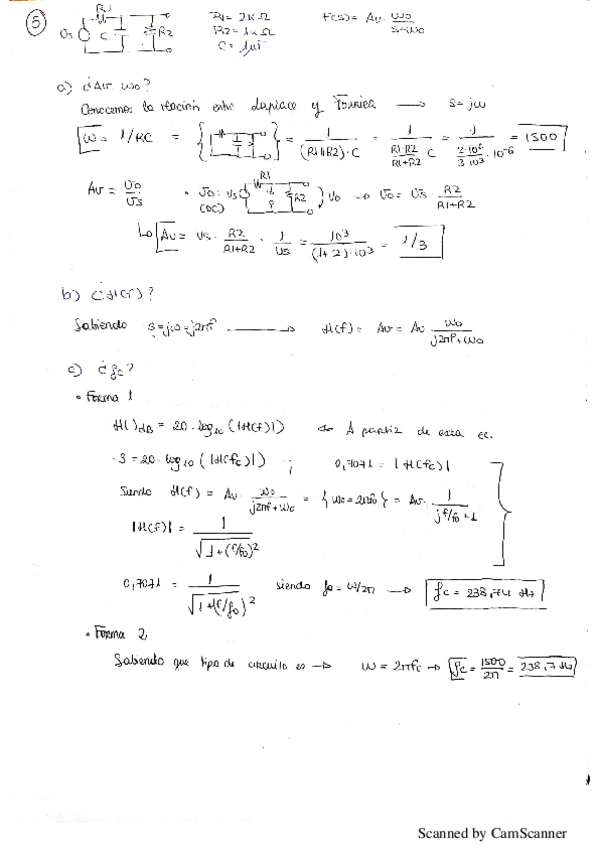 5
R1
Us
C
R2
R1= 2kΩ
R2= 1kΩ
C = 1μF
F(s) = Av · ω0 / s+ω0
a) ¿Av, ω0?
Conocemos la relación entre Laplace y Fourier → s=jω
ω = 1/RC = { } = 1 / (R1||R2)·C = 1 / (R1·R2 / R1+R2) C = 1 / (2·10⁶ / 3·10³)·10⁻⁶ = 1500
Av = Uo / Us
· Uo: (DC)
Us
R1
R2
Uo → Uo = Us · R2 / R1+R2
Lo Av = Us · R2 / R1+R2 · 1 / Us = 10³ / (1+2)·10³ = 1/3
b) ¿H(f)?
Sabiendo s=jω=j2πf → H(f) = Av = Av ω0 / j2πf+ω0
c) ¿fc?
· Forma 1
H( )dB = 20·log10 (|H(f)|) A partir de esta ec.
-3 = 20·log10 (|H(fc)|) ; 0,7071 = |H(fc)|
Siendo H(f) = Av · ω0 / j2πf+ω0 = { ω0 = 2πf0 } = Av · 1 / j f/f0 + 1
|H(f)| = 1 / √1+(f/f0)²
0,7071 = 1 / √1+(f/f0)² siendo f0 = ω/2π → fc = 238,74 Hz
· Forma 2
Sabiendo que tipo de circuito es → ω = 2πfc → fc = 1500 / 2π = 238,7 Hz
Scanned by CamScanner